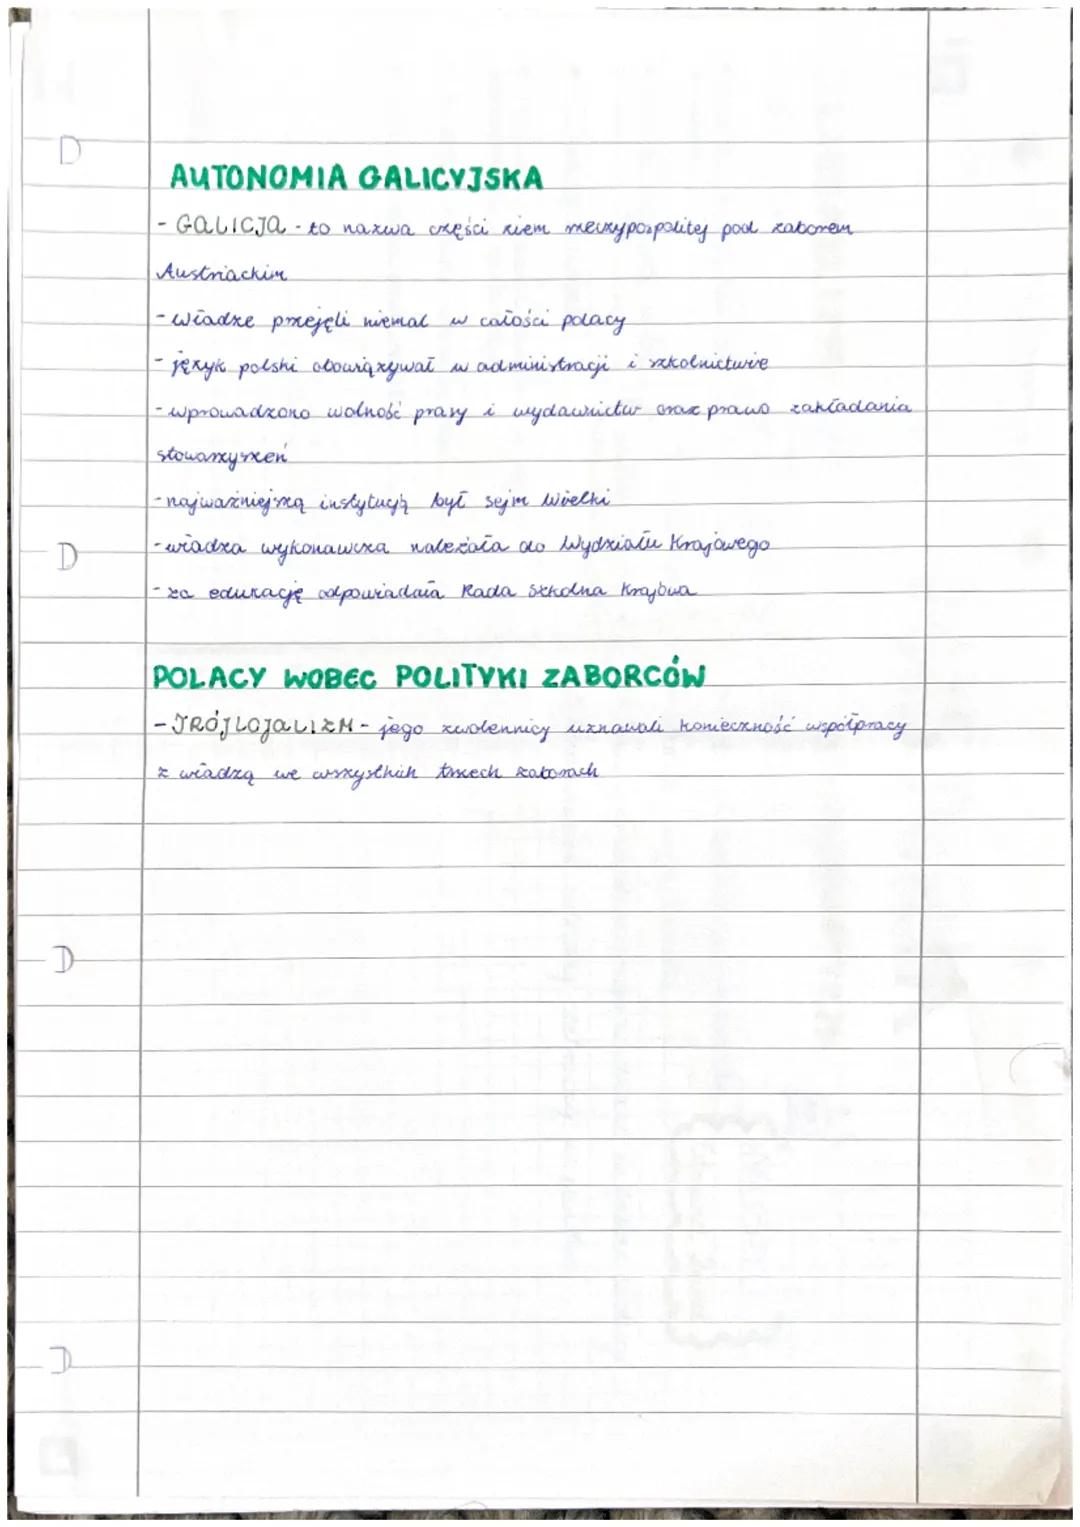 AUTONOMIA GALICYJSKA
- GALICJA - to nazwa części ziem rzeczypospolitej pod zaborem
Austriackim
- władze przejęli niemal w całości polacy
- język polski obowiązywał w administracji i szkolnictwie
- wprowadzono wolność prasy i wydawnictw oraz prawo zakładania
stowarzyszeń
- najważniejszą instytucją był sejm Wielki
- władza wykonawcza należała do Wydziału Krajowego
- za edukację odpowiadała Rada Szkolna Krajowa
POLACY WOBEC POLITYKI ZABORCÓW
- TRÓJLOJALIZM - jego zwolennicy uznawali konieczność współpracy
z władzą we wszystkich trzech zaborach